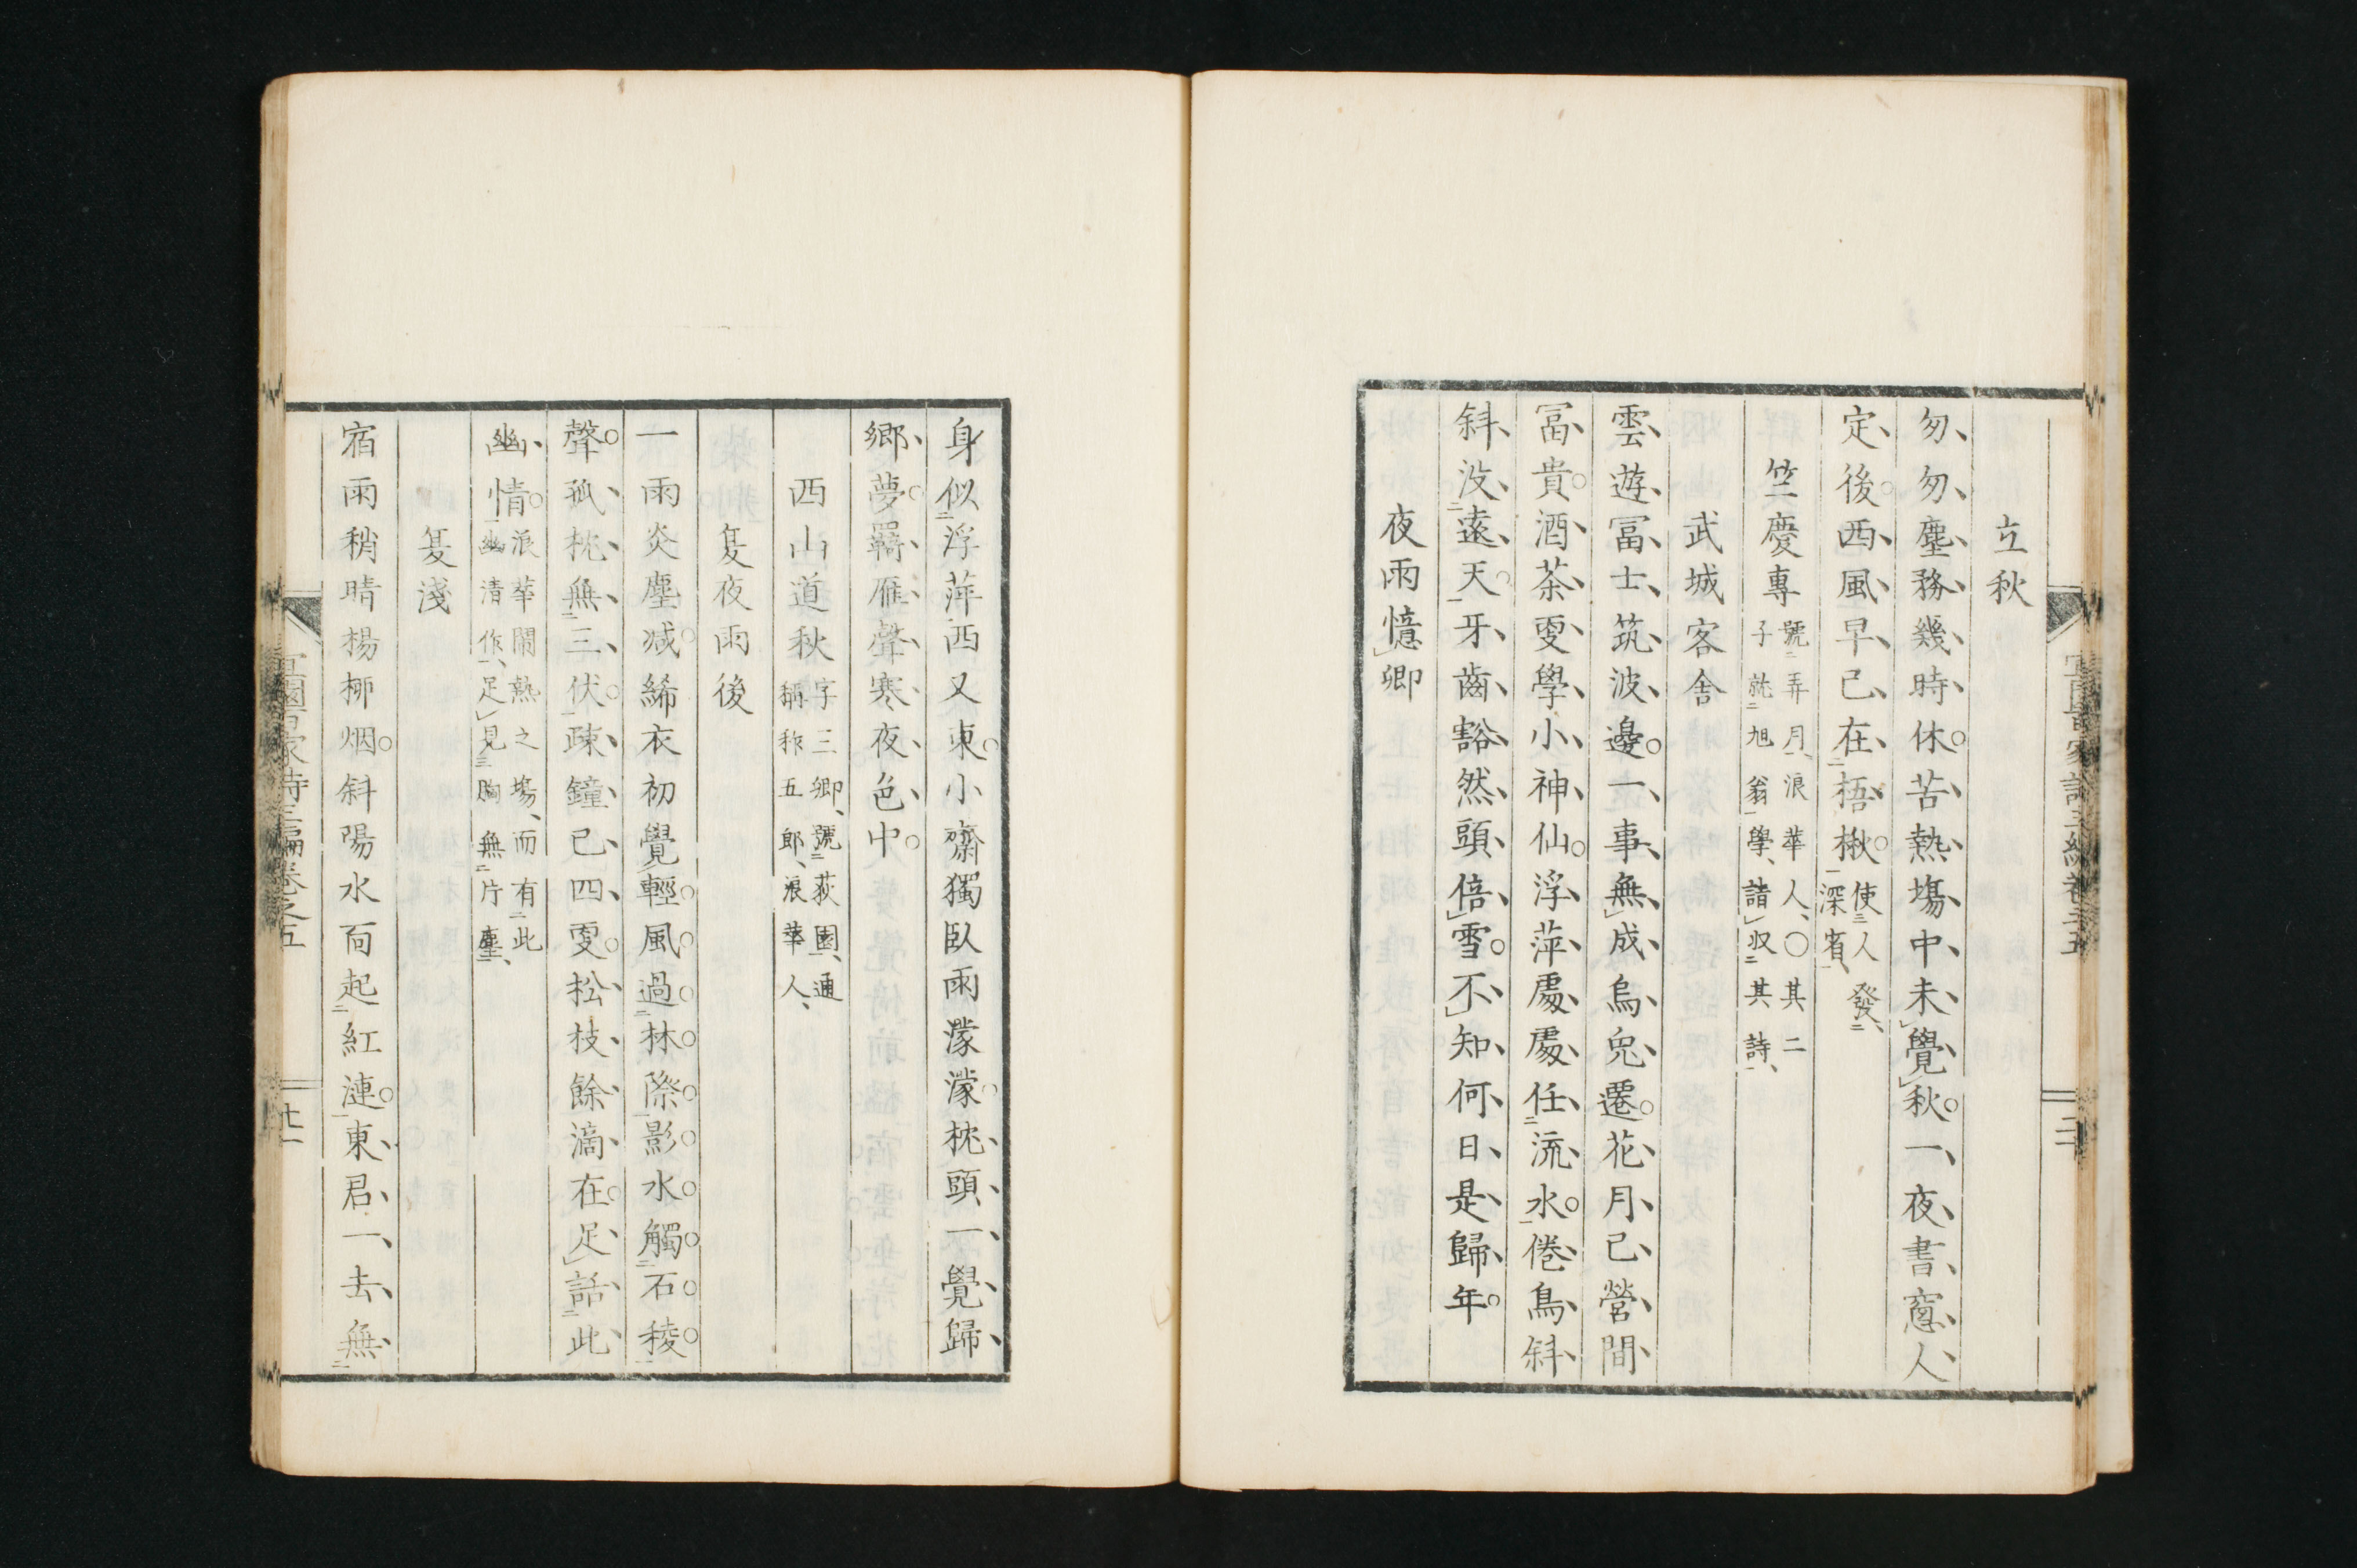 立秋
匆匆塵務幾時休苦熱塲中未覺秋一夜書窓人
定後西風早已在梧楸使人發深省
竺慶專號弄月浪華人〇其二子就旭翁學諧収其詩
武城客舍
雲遊冨士筑波邊一事無成烏兎遷花月已營間
冨貴酒茶更學小神仙浮萍處處任流水倦鳥斜
斜没遠天牙齒豁然頭倍雪不知何日是歸年
夜雨憶卿
二十
身似浮萍西又東小齋獨臥雨濛濛枕頭一覺歸
鄉夢羇雁聲寒夜色中
西山道秋字三卿號荻園通稱称五郎浪華人
夏夜雨後
一雨炎塵减絺衣初覺輕風過林際影水觸石稜
聲孤枕無三伏疎鐘已四更松枝餘滴在足話此
幽情浪華閙熱之塲而有此幽清作足見胸無片塵
夏淺
宿雨稍晴楊柳烟斜陽水面起紅漣東君一去無
卷之五
廿一